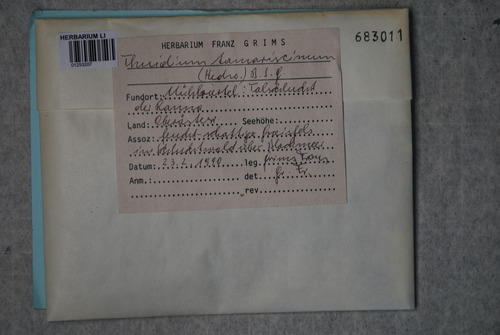 HERBARIUM LI
683011
HERBARIUM FRANZ GRIMS
Thuidium tamariscinum
(Hedw.) B.S.G
Fundort: Mühlviertel: Talschlucht
der Ranna
Land: Oberösterr. Seehöhe:
Assoz:
im Schluchtwald über
Datum: 23.2.1990 leg. Grims Franz
Anm.: det Gr. Fr.
rev